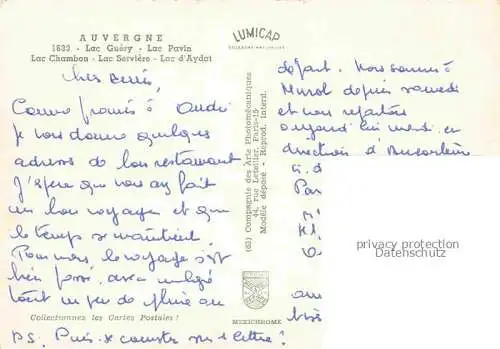 AUVERGNE
1633 - Lac Guéry - Lac Pavin
Lac Chambon - Lac Servière - Lac d'Aydat
LUMICAP
Chers amis,
Comme promis à André
je vous donne quelques
adresses de bon restaurant
J'espère que vous avez fait
un bon voyage et que
le temps se maintient.
Pour nous le voyage s'est
bien passé, avec malgré
tout un peu de pluie au
départ. Nous sommes à
Murol depuis samedi
et nous repartons
aujourd'hui mardi en
direction d'
Par
(63) Compagnie des Arts Photomécaniques
44, rue Letellier, Paris-15
Modèle déposé - Reprod. Interd.
privacy protection
Datenschutz
MEXICHROME
Collectionnez les Cartes Postales !
P.S. lettre ?